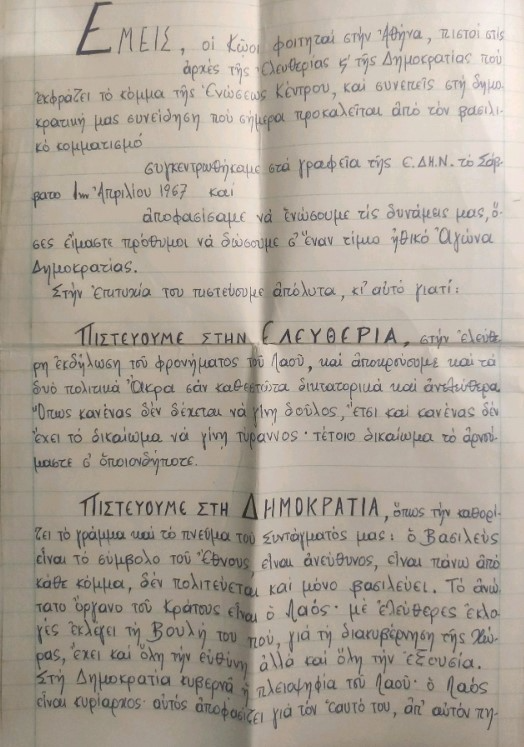 ΕΜΕΙΣ, οἱ Κῶοι φοιτηταί στήν Ἀθήνα, πιστοί στίς
ἀρχές τῆς Ἐλευθερίας κ' τῆς Δημοκρατίας πού
ἐκφράζει τό κόμμα τῆς Ἑνώσεως Κέντρου, καί συνεπεῖς στή δημο-
κρατική μας συνείδηση πού σήμερα προκαλεῖται ἀπό τόν βασιλι-
κό κομματισμό
συγκεντρωθήκαμε στά γραφεῖα τῆς Ε.ΔΗ.Ν. τό Σάβ-
βατο 1ην Ἀπριλίου 1967 καί
ἀποφασίσαμε νά ἑνώσουμε τίς δυνάμεις μας, ὅ-
σες εἴμαστε πρόθυμοι νά δώσουμε σ' ἕναν τίμιο ἠθικό Ἀγώνα
Δημοκρατίας.
Στήν Ἐπιτυχία του πιστεύουμε ἀπόλυτα, κι' αὐτό γιατί:
ΠΙΣΤΕΥΟΥΜΕ ΣΤΗΝ ΕΛΕΥΘΕΡΙΑ, στήν ἐλεύθε-
ρη ἐκδήλωση τοῦ φρονήματος τοῦ Λαοῦ, καί ἀποκρούουμε καί τά
δυό πολιτικά Ἄκρα σάν καθεστῶτα δικτατορικά καί ἀνελεύθερα.
Ὅπως κανένας δέν δέχεται νά γίνη δοῦλος, ἔτσι καί κανένας δέν
ἔχει τό δικαίωμα νά γίνη τύραννος· τέτοιο δικαίωμα τό ἀρνού-
μαστε σ' ὁποιονδήποτε.
ΠΙΣΤΕΥΟΥΜΕ ΣΤΗ ΔΗΜΟΚΡΑΤΙΑ, ὅπως τήν καθορί-
ζει τό γράμμα καί τό πνεῦμα τοῦ Συντάγματός μας: ὁ Βασιλεύς
εἶναι τό σύμβολο τοῦ Ἔθνους, εἶναι ἀνεύθυνος, εἶναι πάνω ἀπό
κάθε κόμμα, δέν πολιτεύεται καί μόνο βασιλεύει. Τό ἀνώ-
τατο ὄργανο τοῦ Κράτους εἶναι ὁ Λαός· μέ ἐλεύθερες ἐκλο-
γές ἐκλέγει τή Βουλή του πού, γιά τή διακυβέρνηση τῆς Χώ-
ρας, ἔχει καί ὅλη τήν εὐθύνη ἀλλά καί ὅλη τήν ἐξουσία.
Στή Δημοκρατία κυβερνᾶ ἡ πλειοψηφία τοῦ Λαοῦ· ὁ Λαός
εἶναι κυρίαρχος· αὐτός ἀποφασίζει γιά τόν ἑαυτό του, ἀπ' αὐτόν πη-